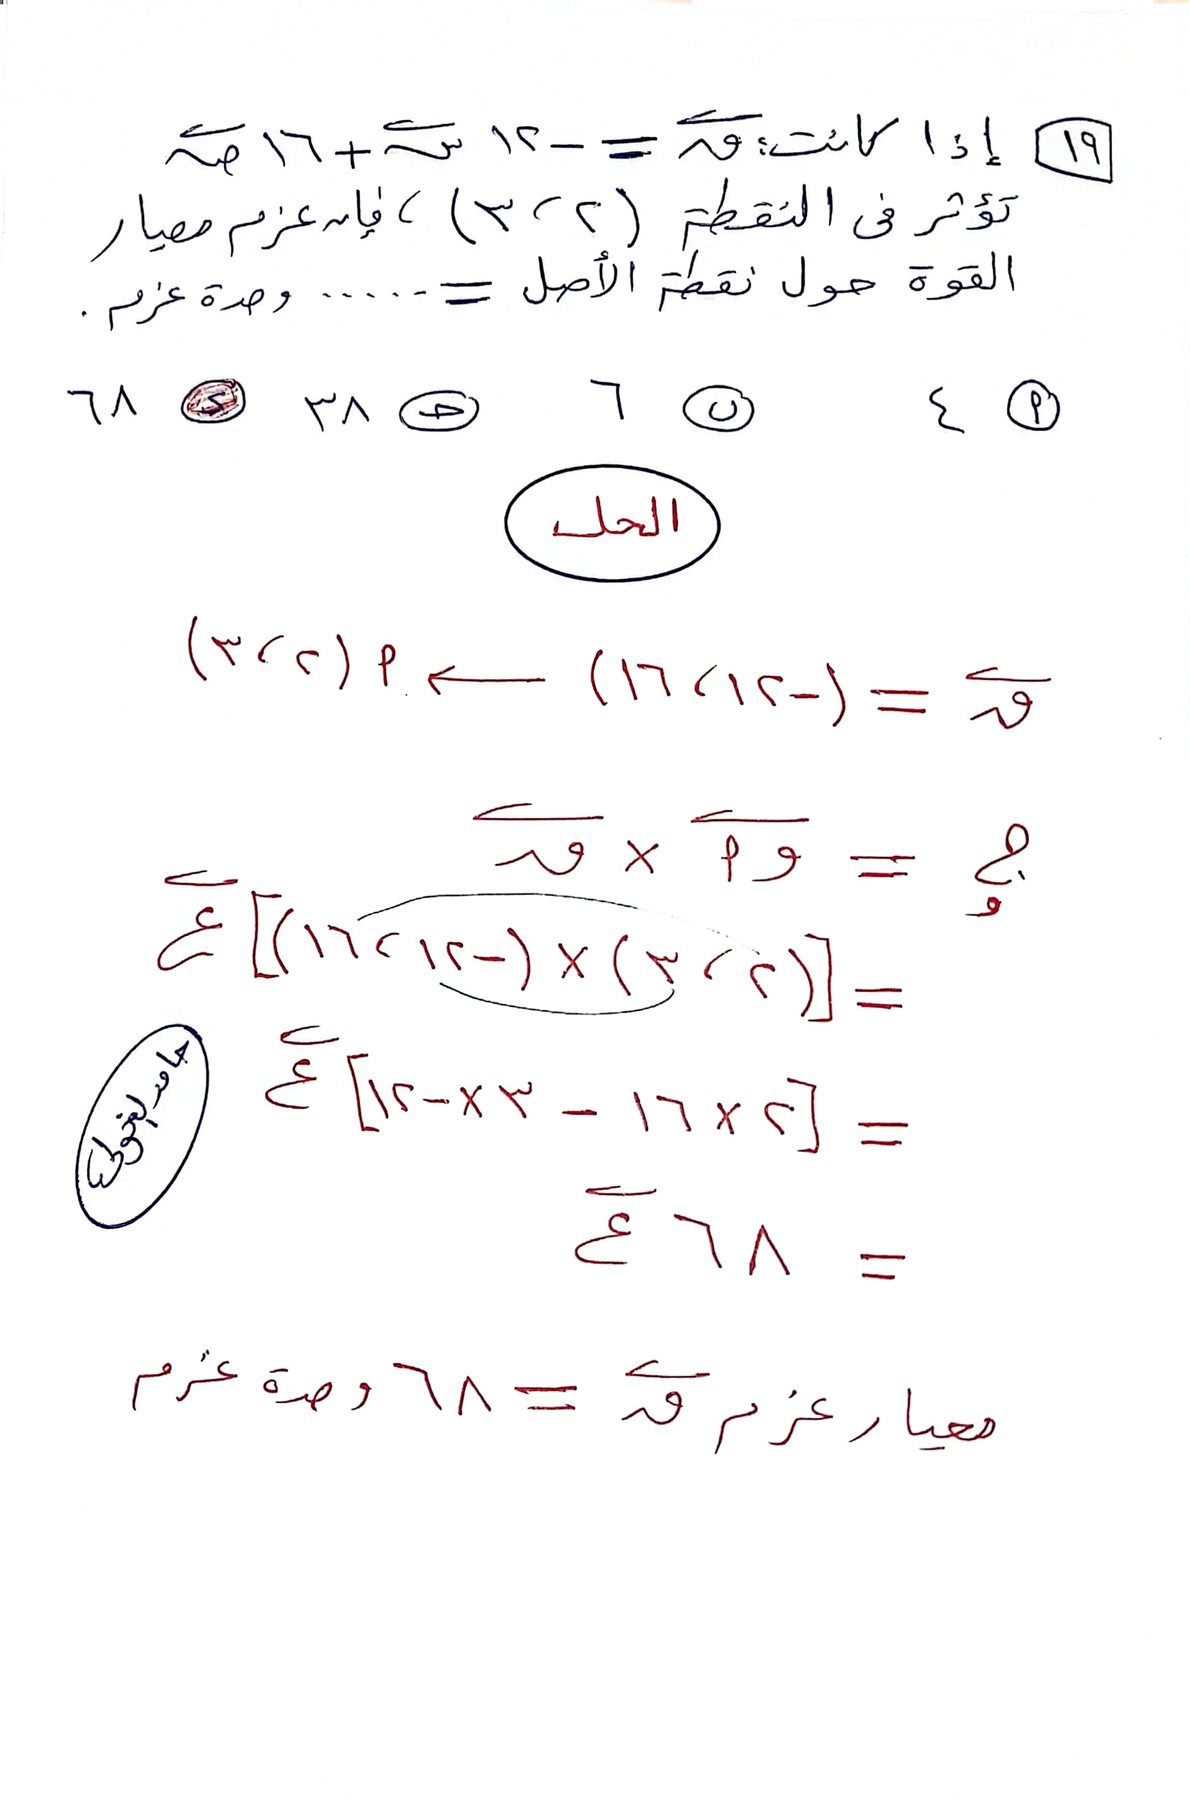 ١٩ إذا كانت: ق = -١٢ س + ١٦ ص
تؤثر فى النقطة (٢، ٣)، فإن عزم معيار
القوة حول نقطة الأصل = ...... وحدة عزم.
أ ٤ ب ٦ ج ٣٨ د ٦٨
الحل
ق = (-١٢، ١٦) ← أ (٢، ٣)
ج و = و أ × ق
= [(٢، ٣) × (-١٢، ١٦)] ع
= [٢ × ١٦ - ٣ × -١٢] ع
= ٦٨ ع
معيار عزم ق = ٦٨ وحدة عزم